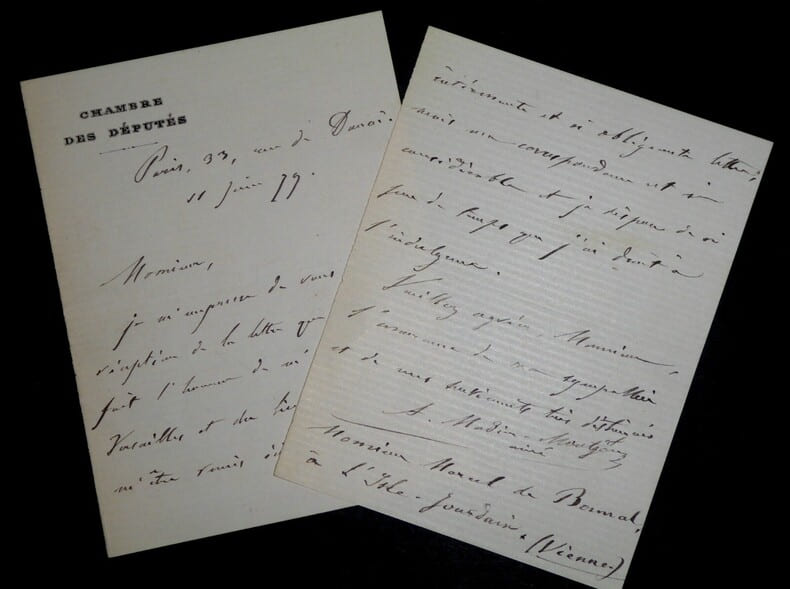 CHAMBRE
DES DÉPUTÉS
Paris, 33, rue de Douai.
11 Juin 79.
Monsieur,
je m'empresse de vous
réception de la lettre que
fait l'honneur de m'
Versailles et du
m'être remis
intéressante et si obligeante lettre;
mais ma correspondance est si
considérable et je dispose de si
peu de temps que j'ai droit à
l'indulgence.
Veuillez agréer, Monsieur,
l'assurance de ma sympathie
et de mes sentiments très distingués
A. Madier-Montjau
aîné
Monsieur Marcel de
à L'Isle-Jourdain. (Vienne.)